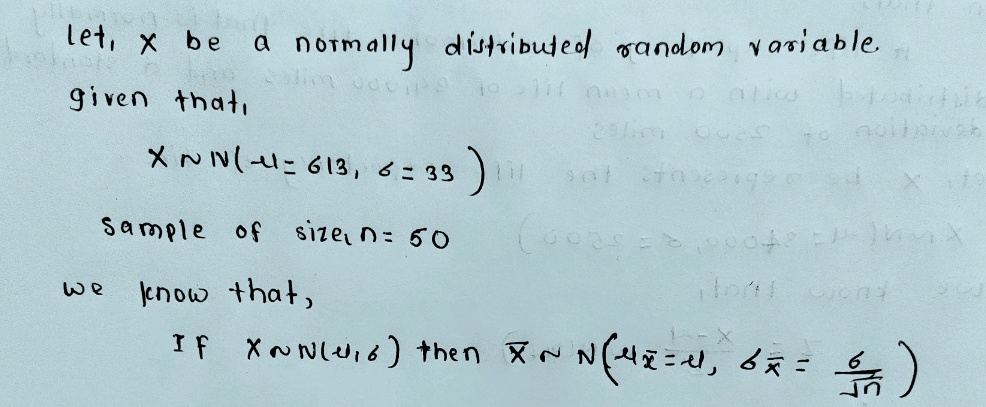 let, X be a normally distributed random variable.
given that,
X ~ N(μ = 613, σ = 33)
sample of size, n = 50
we know that,
If X ~ N(μ, σ) then X̄ ~ N(μx̄ = μ, σx̄ = σ/√n)